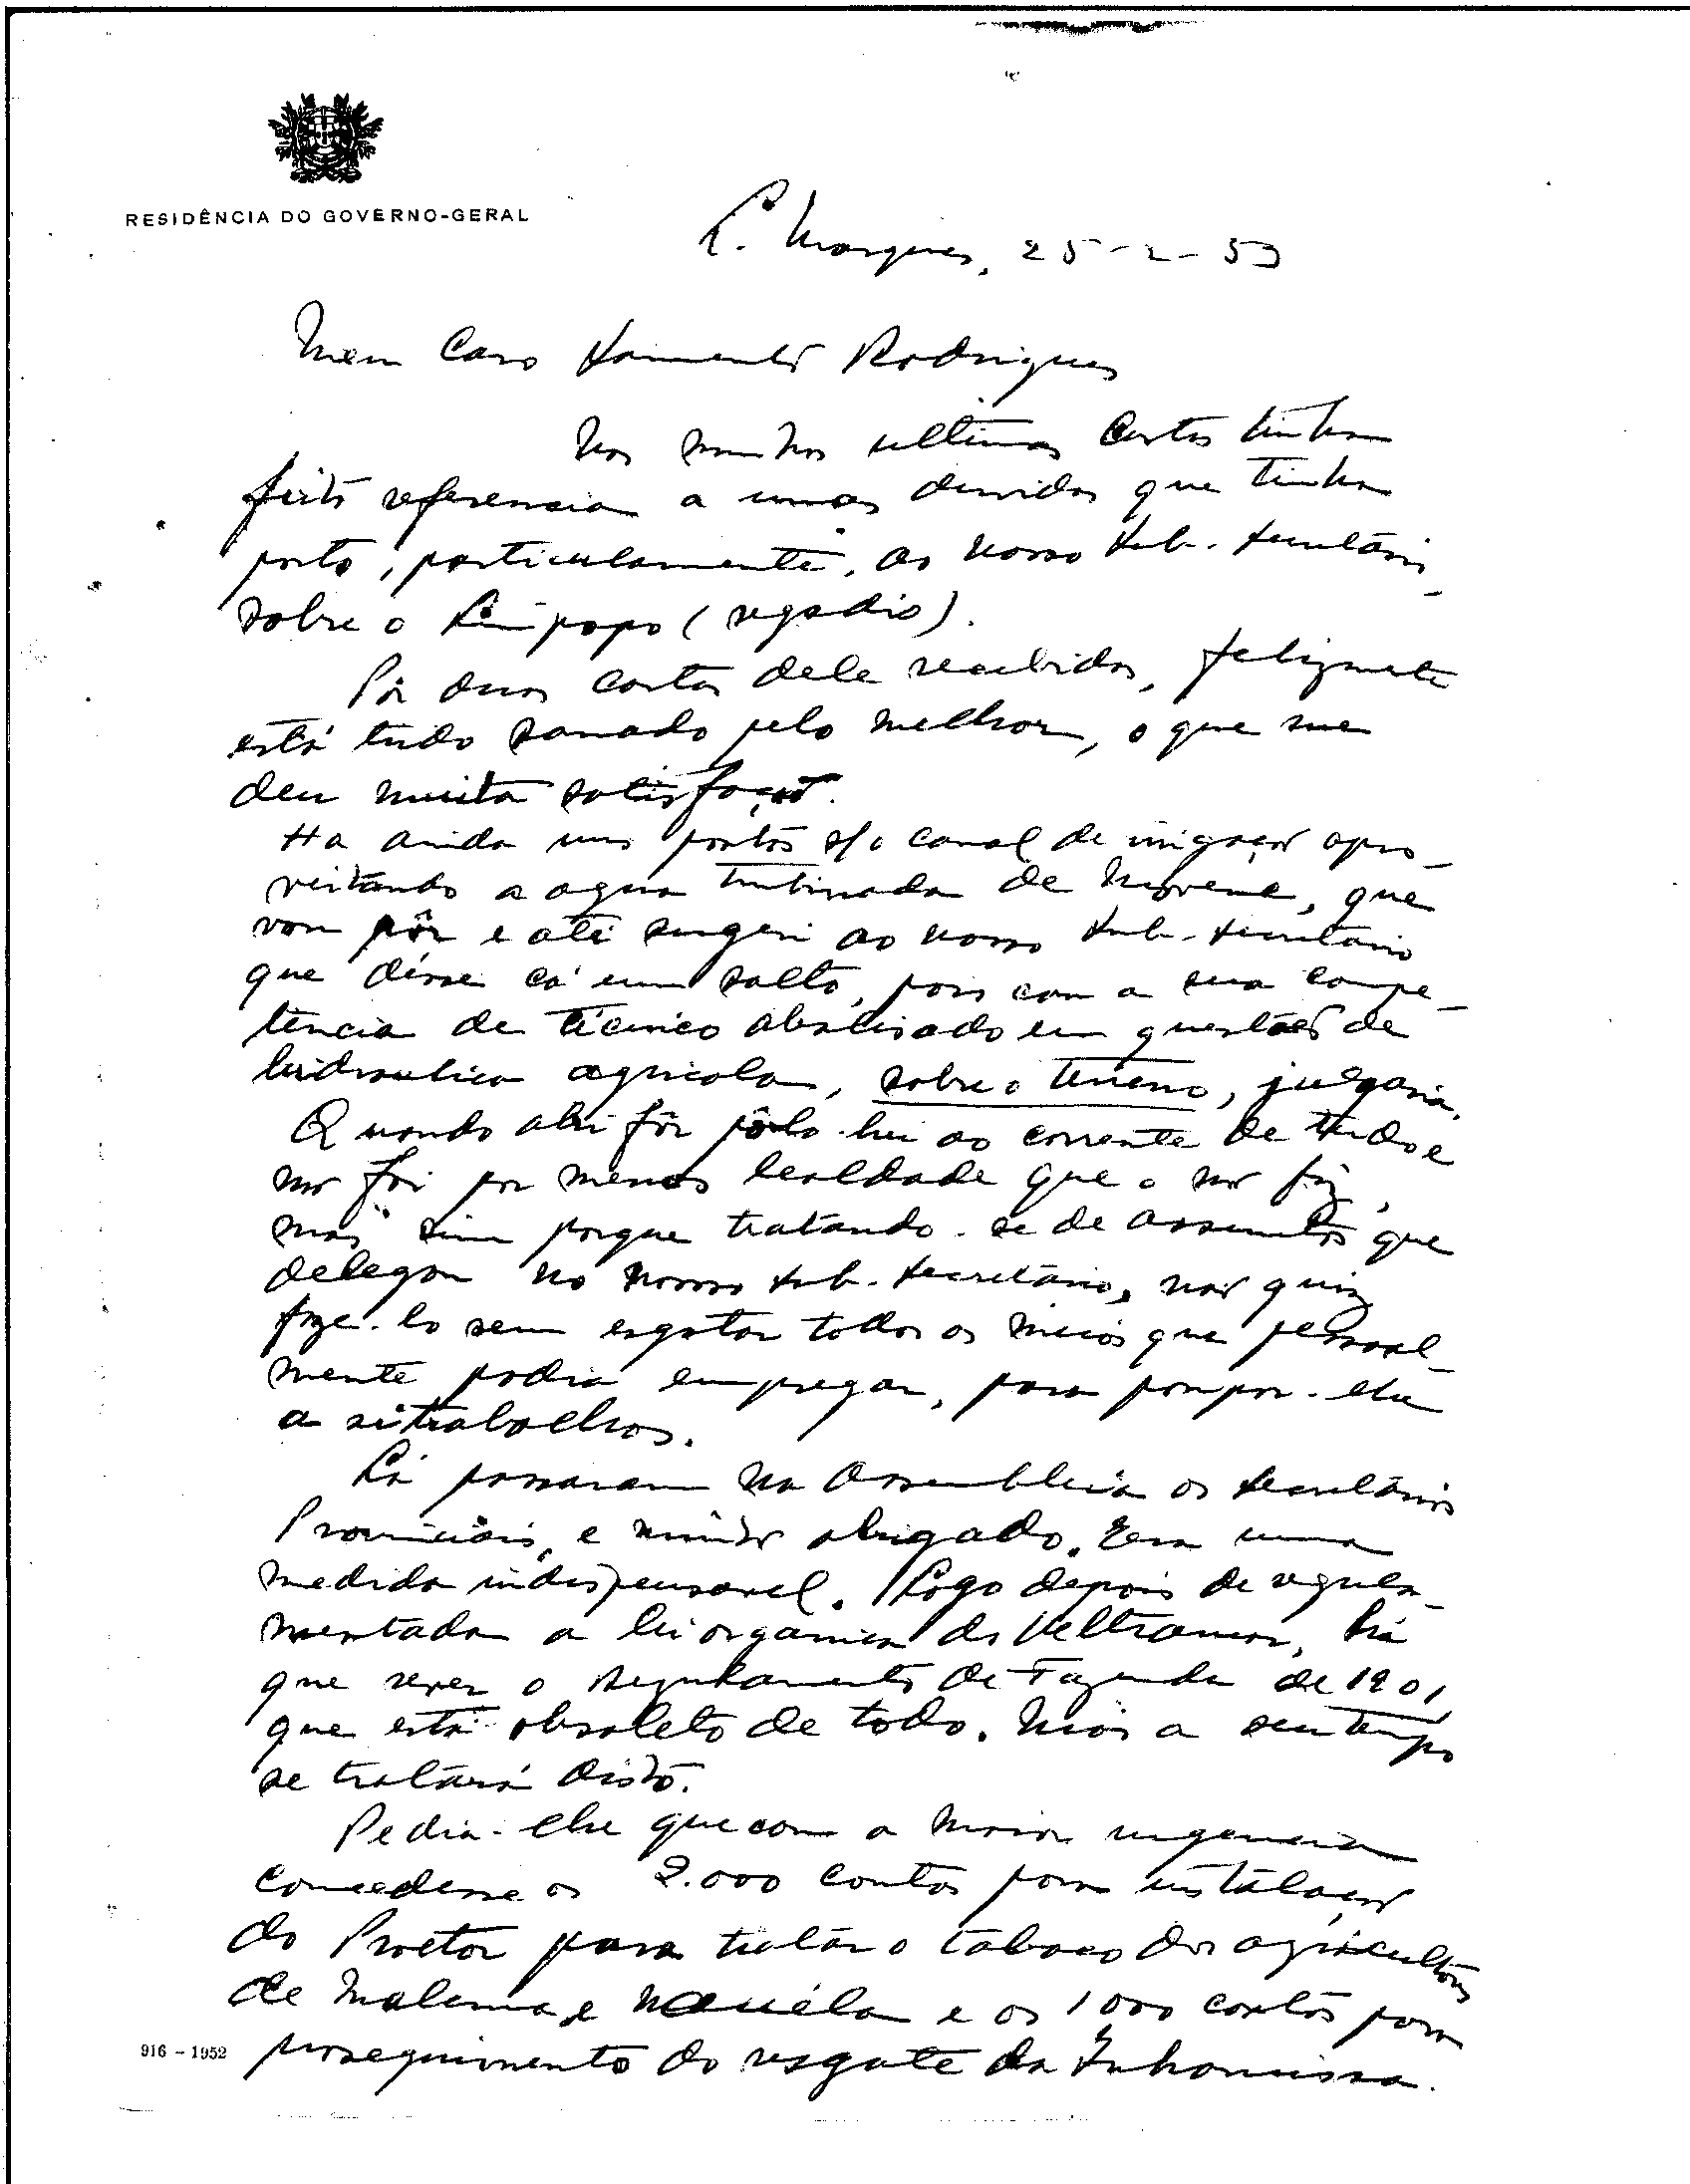 RESIDÊNCIA DO GOVERNO-GERAL
L. Marques, 25-2-53
Meu Caro Sarmento Rodrigues
Nas minhas ultimas cartas tinha
feito referencia a umas duvidas que tinha
posto, particularmente, ao nosso Sub-Secretário,
sobre o Limpopo (regadio).
Por duas cartas dele recebidas, felizmente
está tudo sanado pelo melhor, o que me
deu muita satisfação.
Ha ainda uns pontos s/o canal de irrigação apro-
veitando a agua turbinada de Movene, que
vou pôr e até sugeri ao nosso Sub-Secretario
que désse cá um salto, pois com a sua compe-
tência de técnico abalisado em questões de
hidraulica agricola, sobre o terreno, julgaria.
Quando ahi fôr pô-lo-hei ao corrente de tudo e
não foi por menos lealdade que o não fiz,
mas sim porque tratando-se de assuntos que
delegou no nosso Sub-Secretário, não quiz
faze-lo sem esgotar todos os meios que pessoal-
mente podia empregar, para poupar-lhe
a si trabalhos.
Lá passaram na Assembleia os Secretários
Provinciais, e muito obrigado. Era uma
medida indispensavel. Logo depois de regula-
mentada a lei organica do Ultramar, há
que rever o Regulamento de Fazenda de 1901,
que está obsoleto de todo. Mas a seu tempo
se tratará disto.
Pedia-lhe que com a maior urgencia
concedesse os 2.000 contos para instalação
do Proctor para tratar o tabaco dos agricultores
de Malema e e os 1000 contos para
prosseguimento do resgate da Inhamissa.
916 - 1952